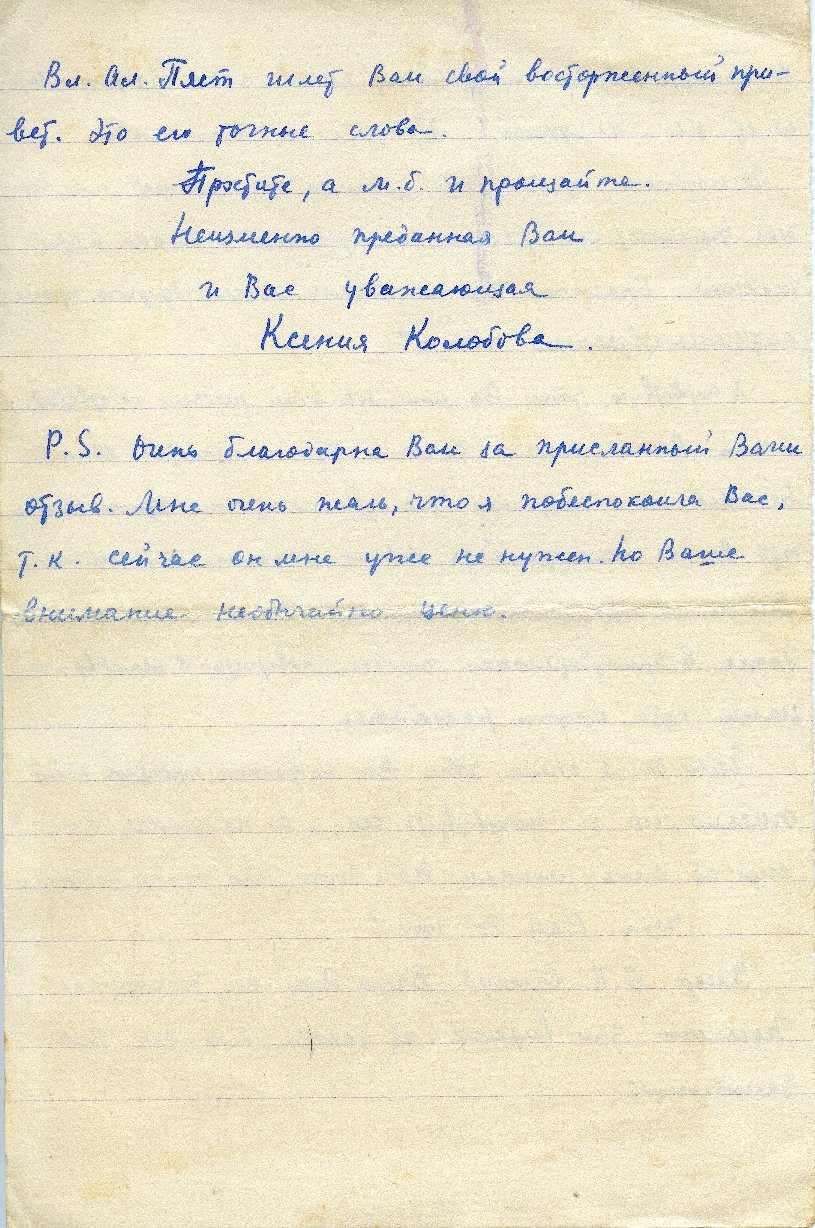 Вл. Ал. Пяст шлет Вам свой восторженный при-
вет. Это его точные слова.
Простите, а м.б. и прощайте.
Неизменно преданная Вам
и Вас уважающая
Ксения Колобова.
P.S. Очень благодарна Вам за присланный Вами
отзыв. Мне очень жаль, что я побеспокоила Вас,
т.к. сейчас он мне уже не нужен. Но Ваше
внимание необычайно ценю.